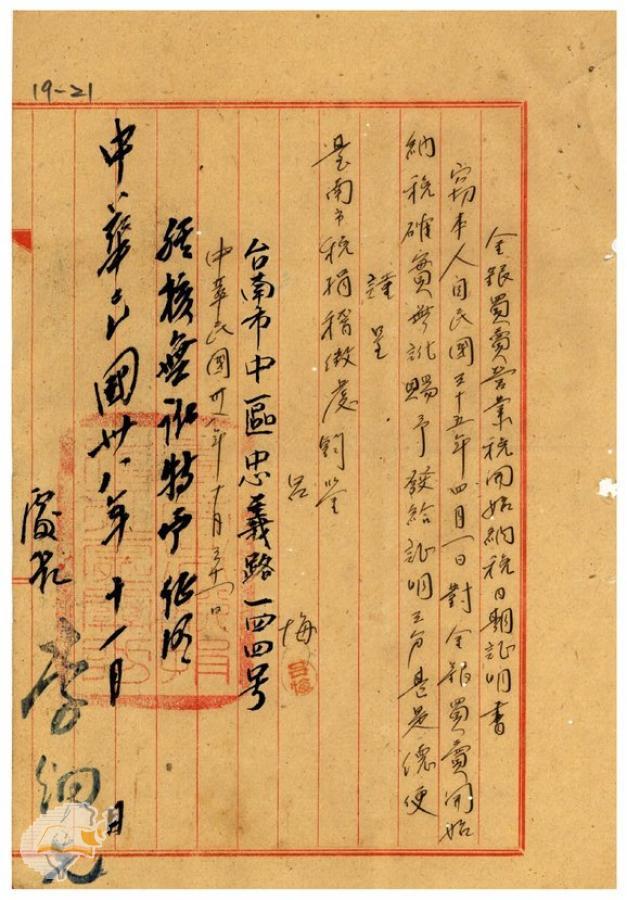 19-21
金銀買賣營業稅開始納稅日期証明書
竊本人自民國三十五年四月一日對金銀買賣開始
納稅確實無訛賜予發給証明三份甚是德便
謹呈
臺南市稅捐稽徵處鈞鑒
呂 悔
台南市中區忠義路一四四号
中華民國卅八年十月三十一日
經核無訛特予証明
中華民國卅八年十一月 日
處長 李